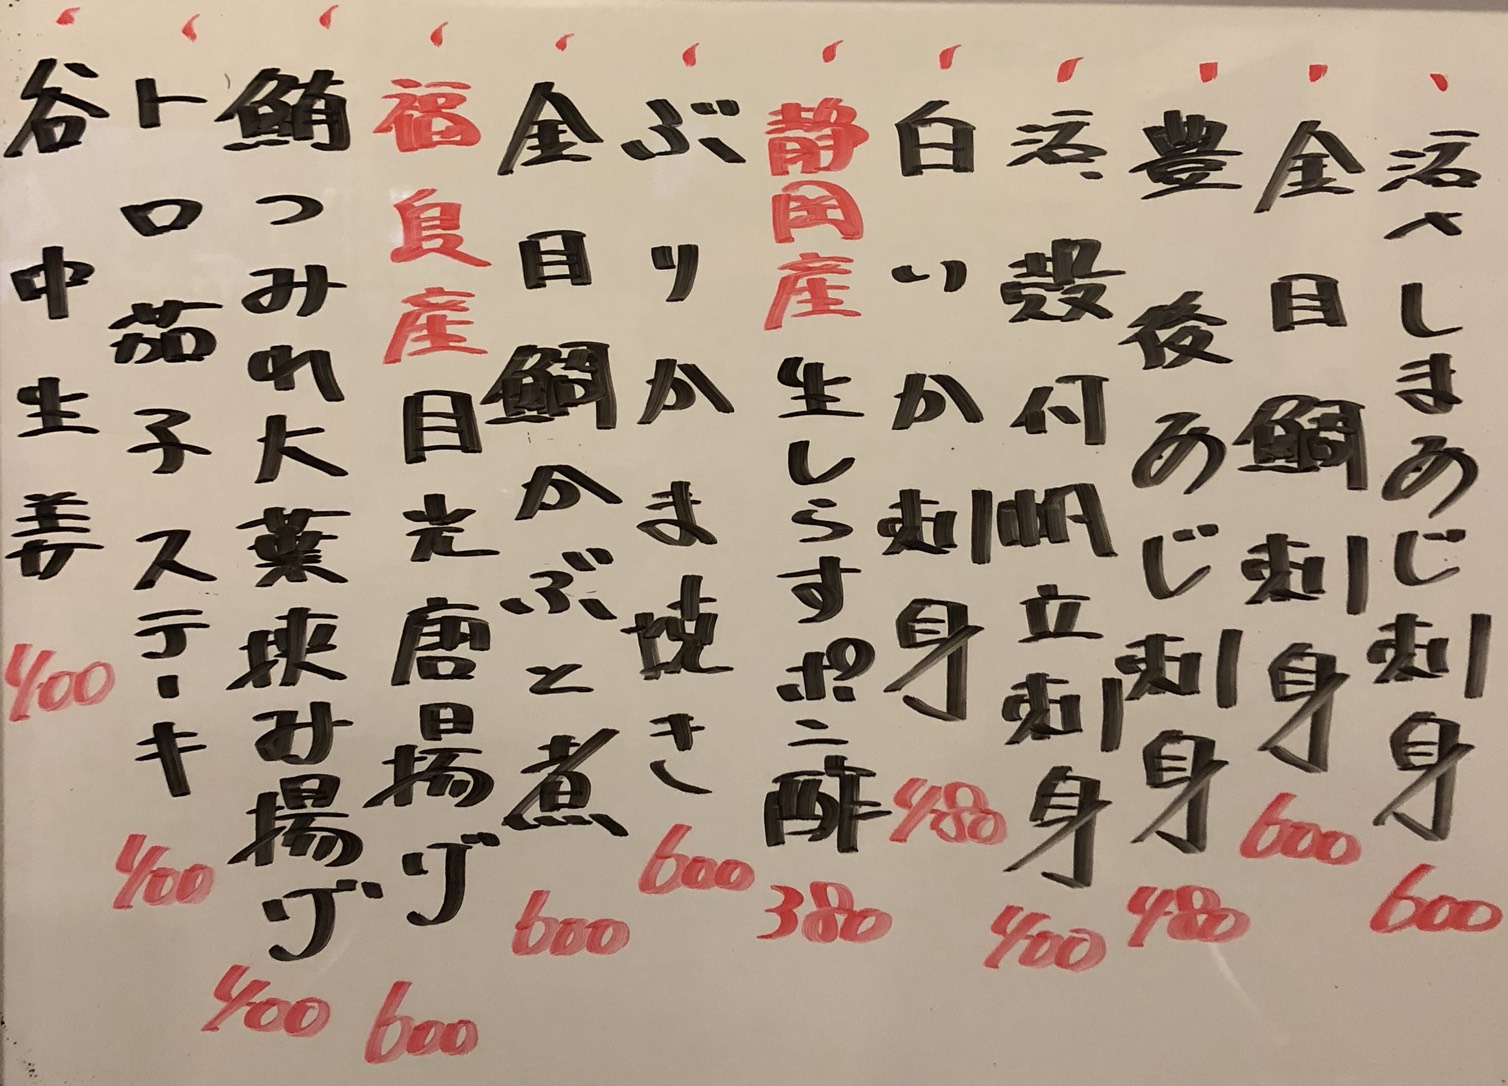 活〆しまあじ刺身 600
金目鯛刺身 600
豊後あじ刺身 480
活、殻付帆立刺身 400
白いか刺身 480
静岡産生しらすポン酢 380
ぶりかま焼き 600
金目鯛かぶと煮 600
福良産目光唐揚げ 600
鮪つみれ大葉挟み揚げ 400
トロ茄子ステーキ 400
谷中生姜 400